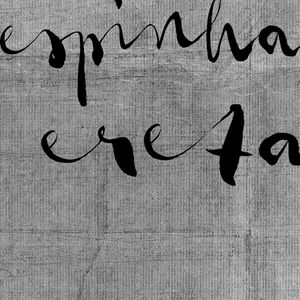 espinha
ereta